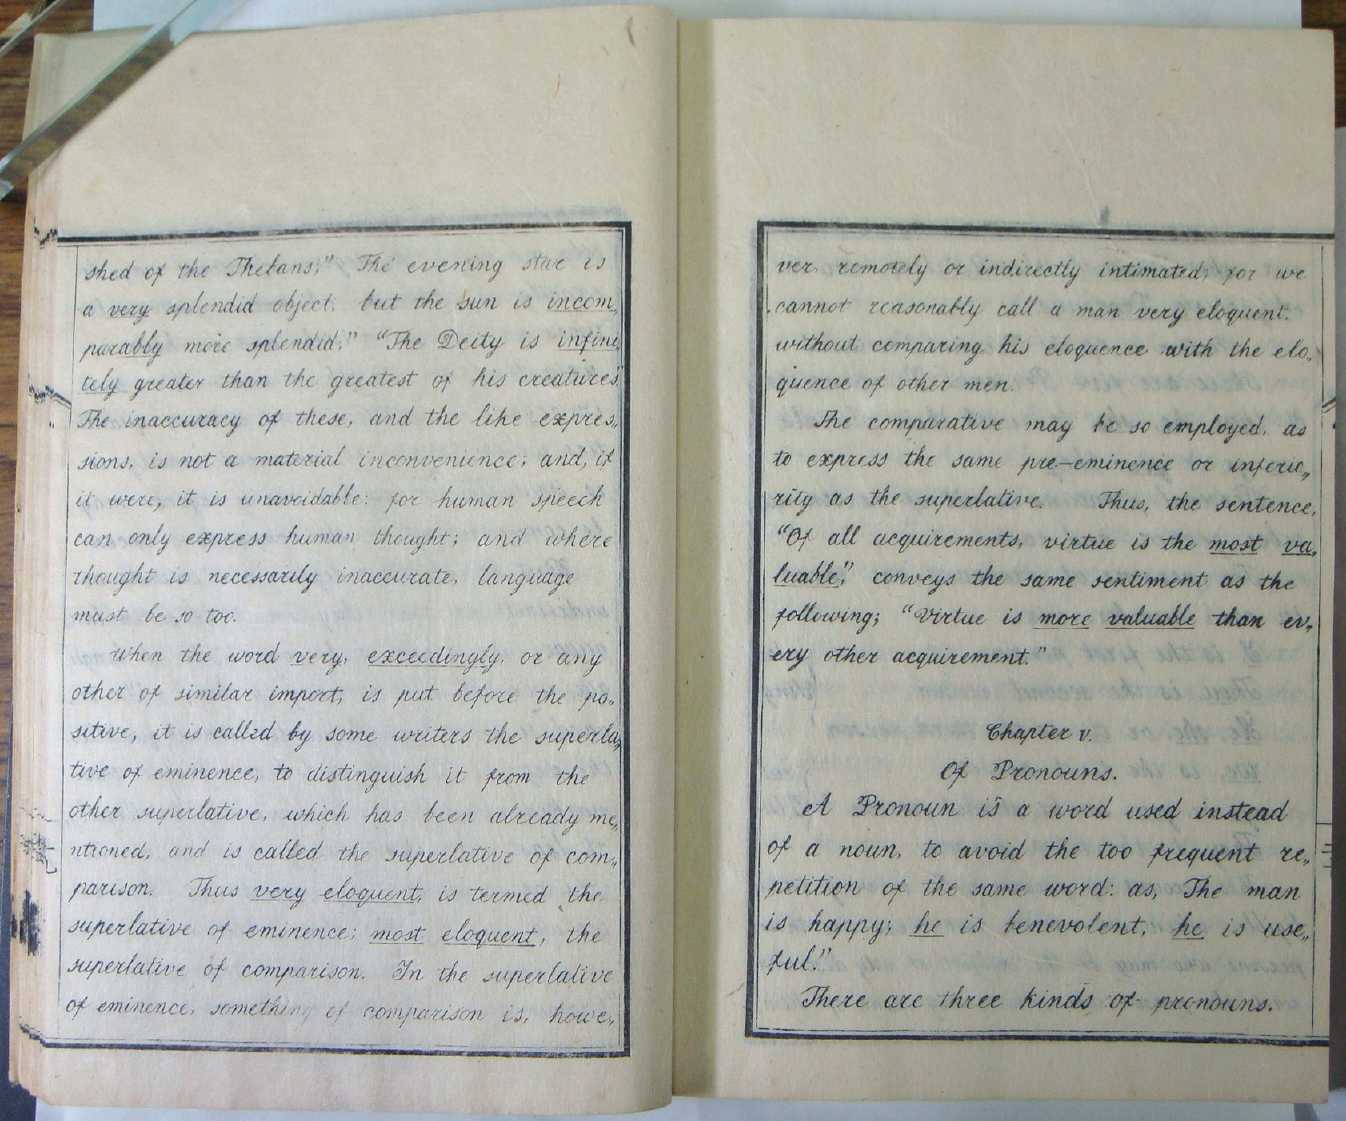 shed of the Thebans;" The evening star is
a very splendid object, but the sun is incom„
parably more splendid." "The Deity is infini„
tely greater than the greatest of his creatures"
The inaccuracy of these, and the like expres„
sions, is not a material inconvenience; and, if
it were, it is unavoidable: for human speech
can only express human thought; and where
thought is necessarily inaccurate, language
must be so too.
When the word very, exceedingly, or any
other of similar import, is put before the po„
sitive, it is called by some writers the superla„
tive of eminence, to distinguish it from the
other superlative, which has been already me„
ntioned, and is called the superlative of com„
parison. Thus very eloquent, is termed the
superlative of eminence; most eloquent, the
superlative of comparison. In the superlative
of eminence, something of comparison is, howe„
ver, remotely or indirectly intimated; for we
cannot reasonably call a man very eloquent,
without comparing his eloquence with the elo„
quence of other men.
The comparative may be so employed, as
to express the same pre-eminence or inferio„
rity as the superlative. Thus, the sentence,
"Of all acquirements, virtue is the most va„
luable," conveys the same sentiment as the
following; "Virtue is more valuable than ev„
ery other acquirement."
Chapter v.
Of Pronouns.
A Pronoun is a word used instead
of a noun, to avoid the too frequent re„
petition of the same word: as, The man
is happy; he is benevolent, he is use„
ful."
There are three kinds of pronouns.